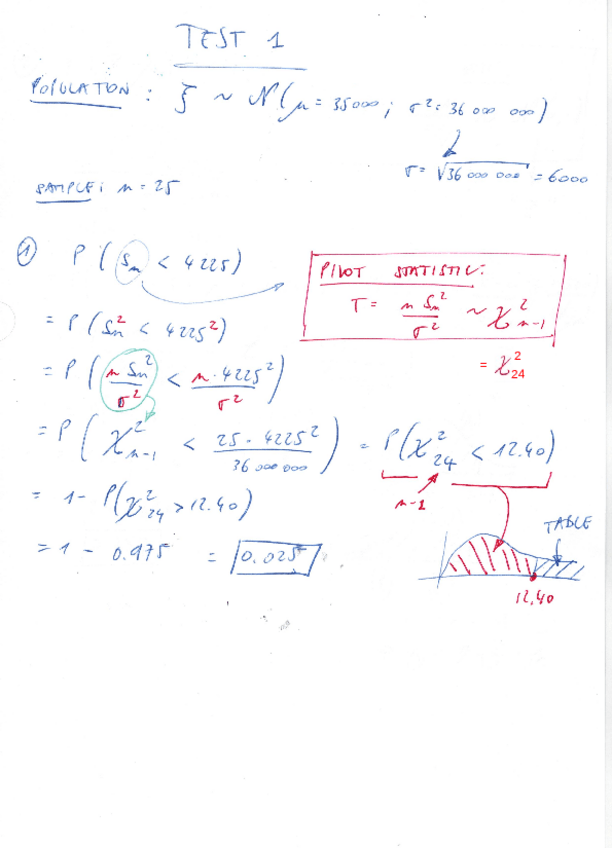 TEST 1
POPULATION : ξ ~ N(μ = 35000 ; σ² = 36 000 000)
σ = √36 000 000 = 6000
SAMPLE : n = 25
① P(Sn < 4225)
PIVOT STATISTIC:
T = n Sn² / σ² ~ χ²n-1
= χ²24
= P(Sn² < 4225²)
= P(n Sn² / σ² < n · 4225² / σ²)
= P(χ²n-1 < 25 · 4225² / 36 000 000) = P(χ²24 < 12.40)
n-1
= 1 - P(χ²24 > 12.40)
TABLE
= 1 - 0.975 = 0.025
12.40